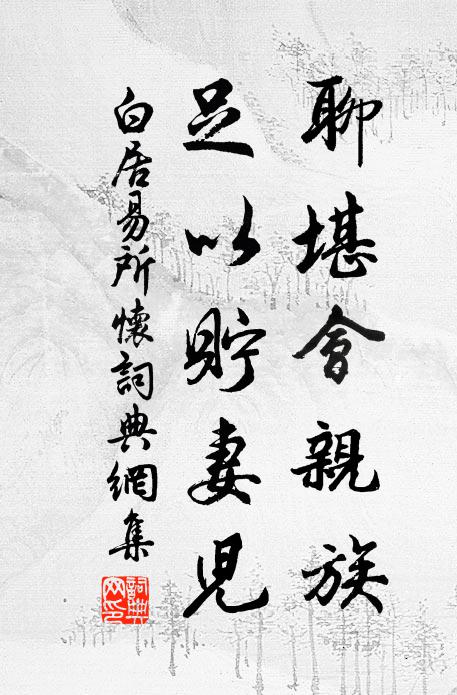 聊堪會親族
足以貯妻兒
白居易所懷詞典網集
詞典網印